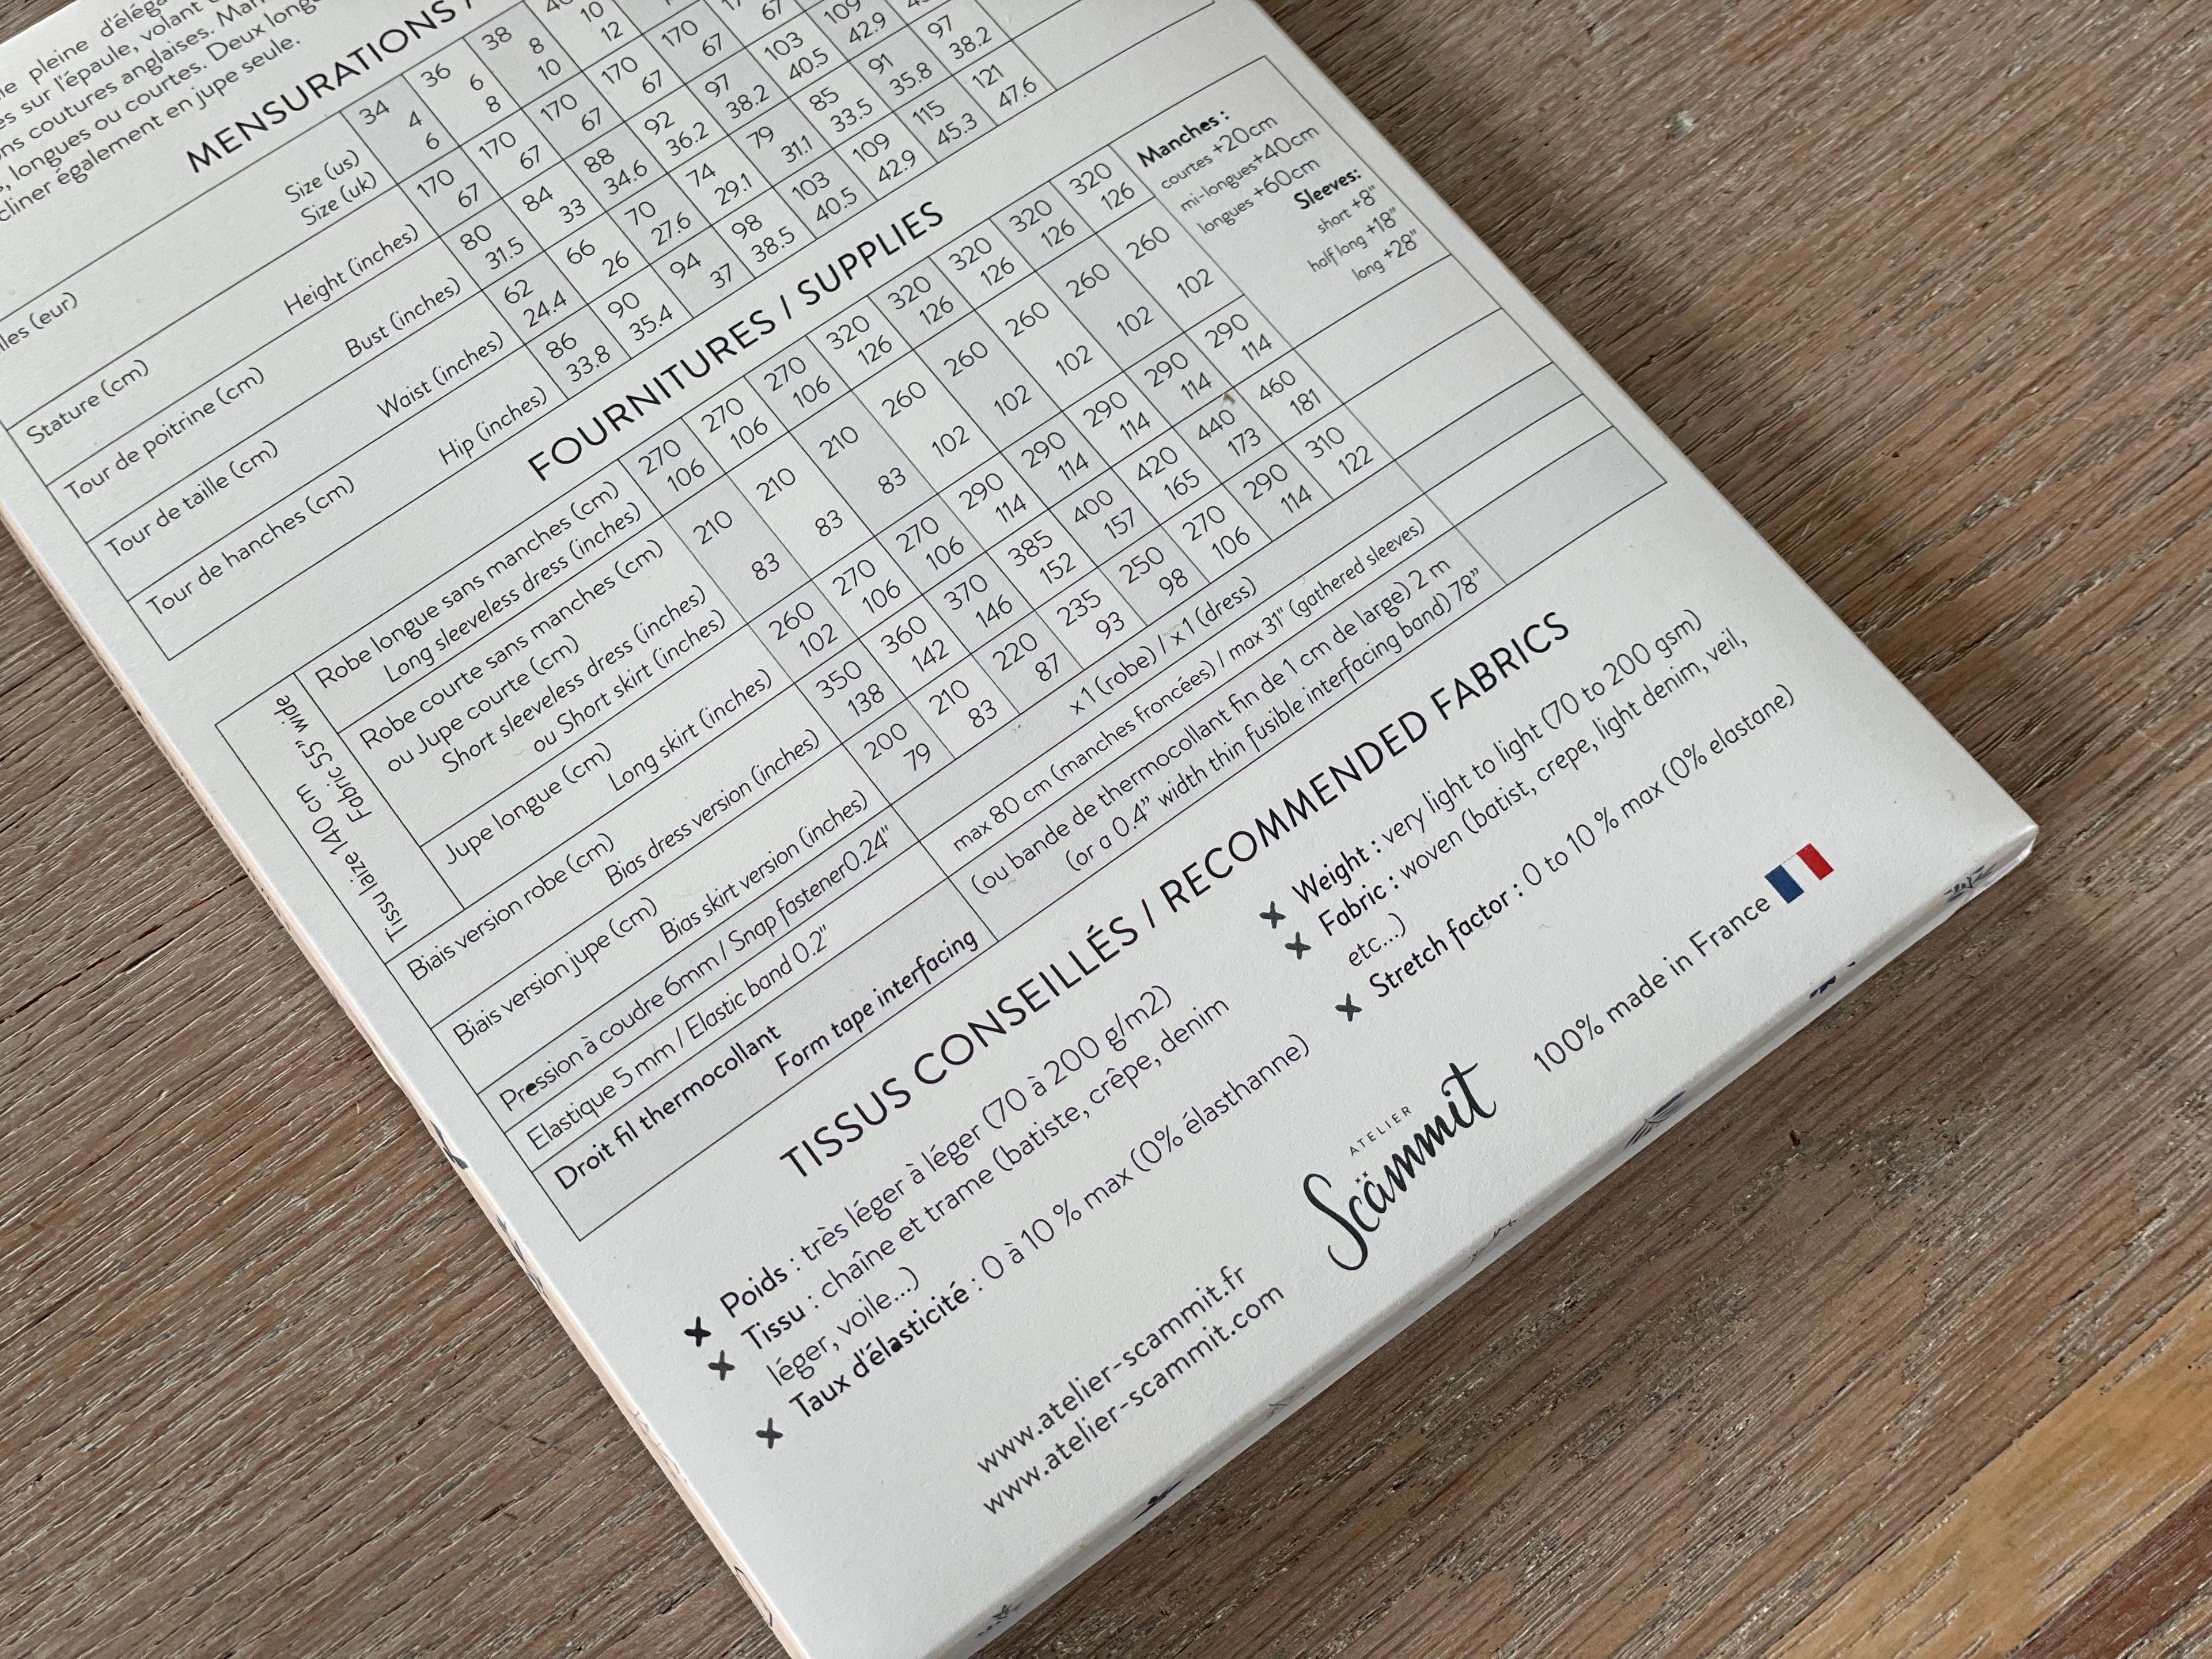 pleine d'éléga
s sur l'épaule, volant
ns coutures anglaises. Man
, longues ou courtes. Deux long
cliner également en jupe seule.
MENSURATIONS /
lles (eur) 34 36 38
Size (us) 4 6 8 10
Size (uk) 6 8 10 12
Stature (cm) 170 170 170 170 170
Height (inches) 67 67 67 67 67 67
Tour de poitrine (cm) 80 84 88 92 97 103 109
Bust (inches) 31.5 33 34.6 36.2 38.2 40.5 42.9
Tour de taille (cm) 62 66 70 74 79 85 91 97
Waist (inches) 24.4 26 27.6 29.1 31.1 33.5 35.8 38.2
Tour de hanches (cm) 86 90 94 98 103 109 115 121
Hip (inches) 33.8 35.4 37 38.5 40.5 42.9 45.3 47.6
FOURNITURES / SUPPLIES
Tissu laize 140 cm
Fabric 55" wide
Robe longue sans manches (cm) 270 270 270 320 320 320 320 320
Long sleeveless dress (inches) 106 106 106 126 126 126 126 126
Robe courte sans manches (cm)
ou Jupe courte (cm) 210 210 210 260 260 260 260 260
Short sleeveless dress (inches)
ou Short skirt (inches) 83 83 83 102 102 102 102 102
Manches :
courtes +20cm
mi-longues+40cm
longues +60cm
Sleeves:
short +8"
half long +18"
long +28"
Jupe longue (cm) 260 270 270 290 290 290 290 290
Long skirt (inches) 102 106 106 114 114 114 114 114
Biais version robe (cm) 350 360 370 385 400 420 440 460
Bias dress version (inches) 138 142 146 152 157 165 173 181
Biais version jupe (cm) 200 210 220 235 250 270 290 310
Bias skirt version (inches) 79 83 87 93 98 106 114 122
Pression à coudre 6mm / Snap fastener0.24" x1 (robe) / x1 (dress)
Elastique 5 mm / Elastic band 0.2" max 80 cm (manches froncées) / max 31" (gathered sleeves)
Droit fil thermocollant (ou bande de thermocollant fin de 1 cm de large) 2 m
Form tape interfacing (or a 0.4" width thin fusible interfacing band) 78"
TISSUS CONSEILLÉS / RECOMMENDED FABRICS
Poids : très léger à léger (70 à 200 g/m2)
Tissu : chaîne et trame (batiste, crêpe, denim
léger, voile...)
Taux d'élasticité : 0 à 10 % max (0% élasthanne)
Weight : very light to light (70 to 200 gsm)
Fabric : woven (batist, crepe, light denim, veil,
etc...)
Stretch factor : 0 to 10 % max (0% elastane)
www.atelier-scammit.fr
www.atelier-scammit.com
ATELIER
Scämmit
100% made in France